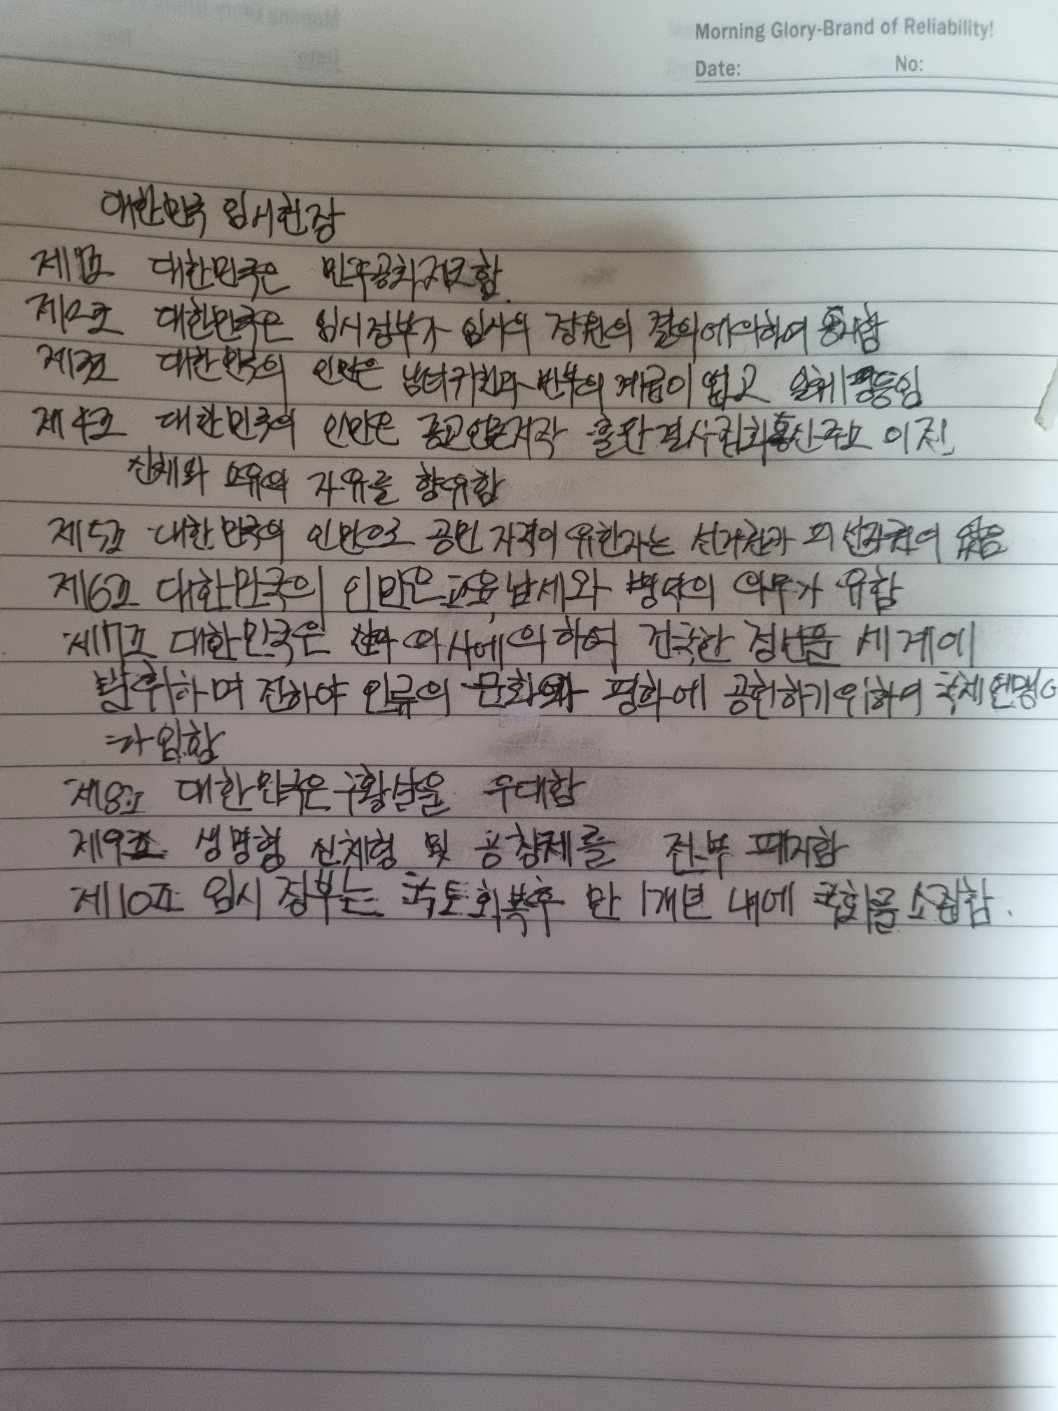 Morning Glory-Brand of Reliability!
Date: No:
대한민국 임시헌장
제1조 대한민국은 민주공화제로함.
제2조 대한민국은 임시정부가 임시의 정원의 결의에의하여 통치함
제3조 대한민국의 인민은 남녀귀천과 빈부의 계급이 업고 일체 평등임
제4조 대한민국의 인민은 종교언론저작 출판결사집회통신주소 이전
신체와 소유의 자유를 향유함
제5조 대한민국의 인민으로 공민 자격이 유한자는 선거권과 피선거권이 있음
제6조 대한민국의 인민은 교육 납세와 병역의 의무가 유함
제7조 대한민국은 신의 의사에의하여 건국한 정신을 세계에
발휘하며 진하야 인류의 문화와 평화에 공헌하기위하여 국제연맹에
가입함
제8조 대한민국은 구황실을 우대함
제9조 생명형 신체형 및 공창제를 전부 폐지함
제10조 임시 정부는 국토회복후 만 1개년 내에 국회를 소집함.